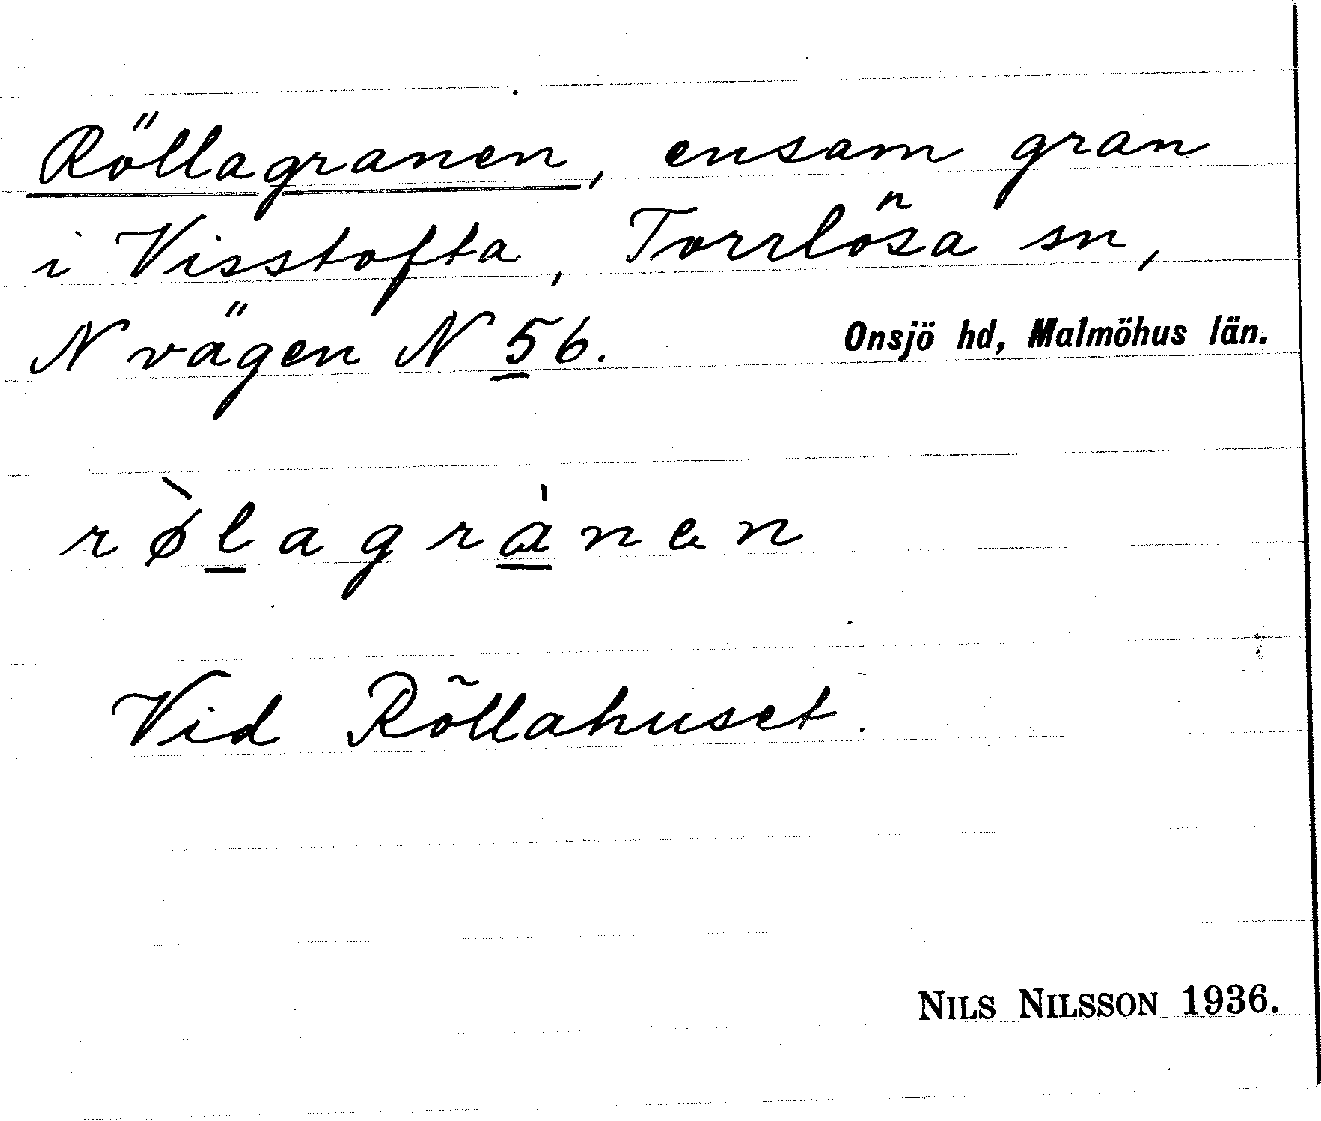 Röllagranen, ensam gran
i Visstofta, Torrlösa sn,
N vägen N 56. Onsjö hd, Malmöhus län.
rø̀lagrànen
Vid Röllahuset.
NILS NILSSON 1936.